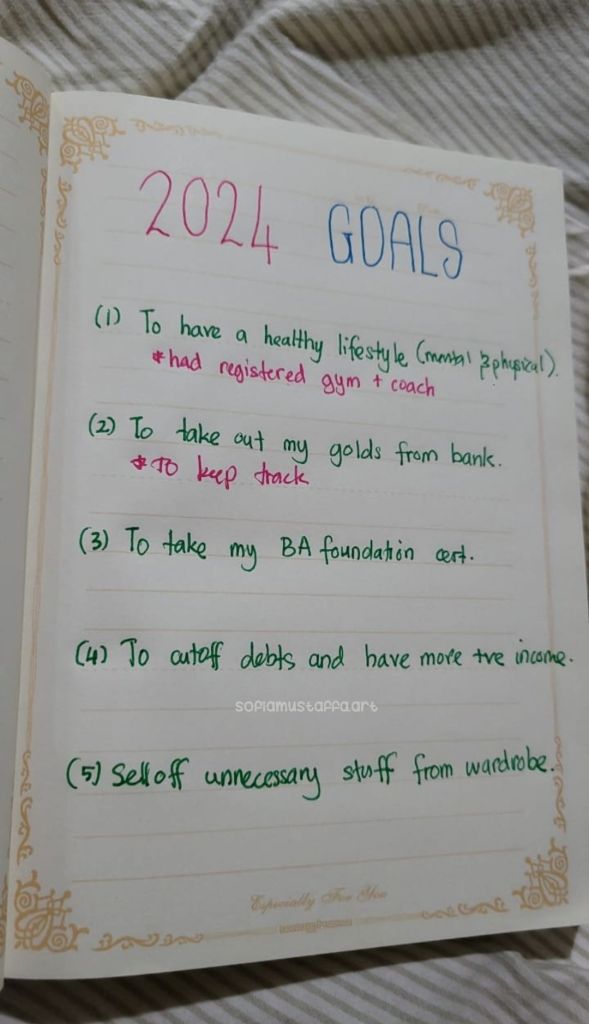 2024 GOALS
(1) To have a healthy lifestyle (mental & physical).
*had registered gym + coach
(2) To take out my golds from bank.
*To keep track
(3) To take my BA foundation cert.
(4) To cutoff debts and have more +ve income.
sofiamustaffa.art
(5) Sell off unnecessary stuff from wardrobe.
Especially For You